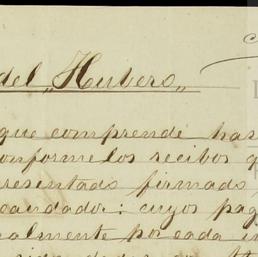 del „Hubero„
que comprende has
onforme los recibos q
presentado firmado
caudador: cuyos pag
almente por cada in